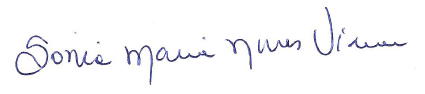 Sonia Maria Nunes Viana